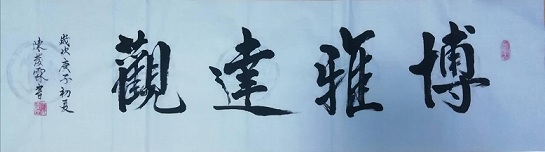 博雅達觀
歲次庚子初夏